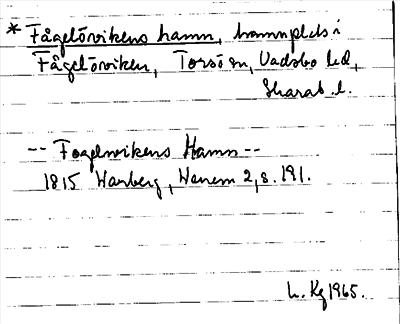 * Fågelövikens hamn, hamnplats i
Fågelöviken, Torsö sn, Vadsbo hd,
Skarab. l.
-- Fogelwikens Hamn --
1815 Warberg, Wenern 2, s. 191.
L. Kg 1965.